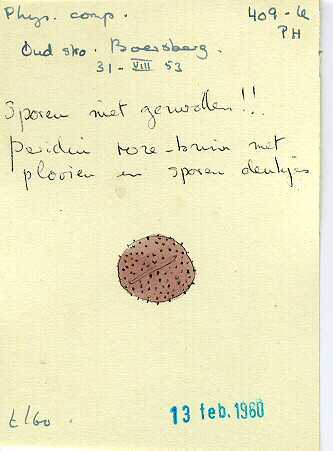 Phys. comp. 409-6
PH
Oud sko. Boersberg.
31-VIII 53
Sporen niet gezwollen!!!
peridia roze-bruin met
plooien en sporen deukjes
t/60.
13 feb. 1960